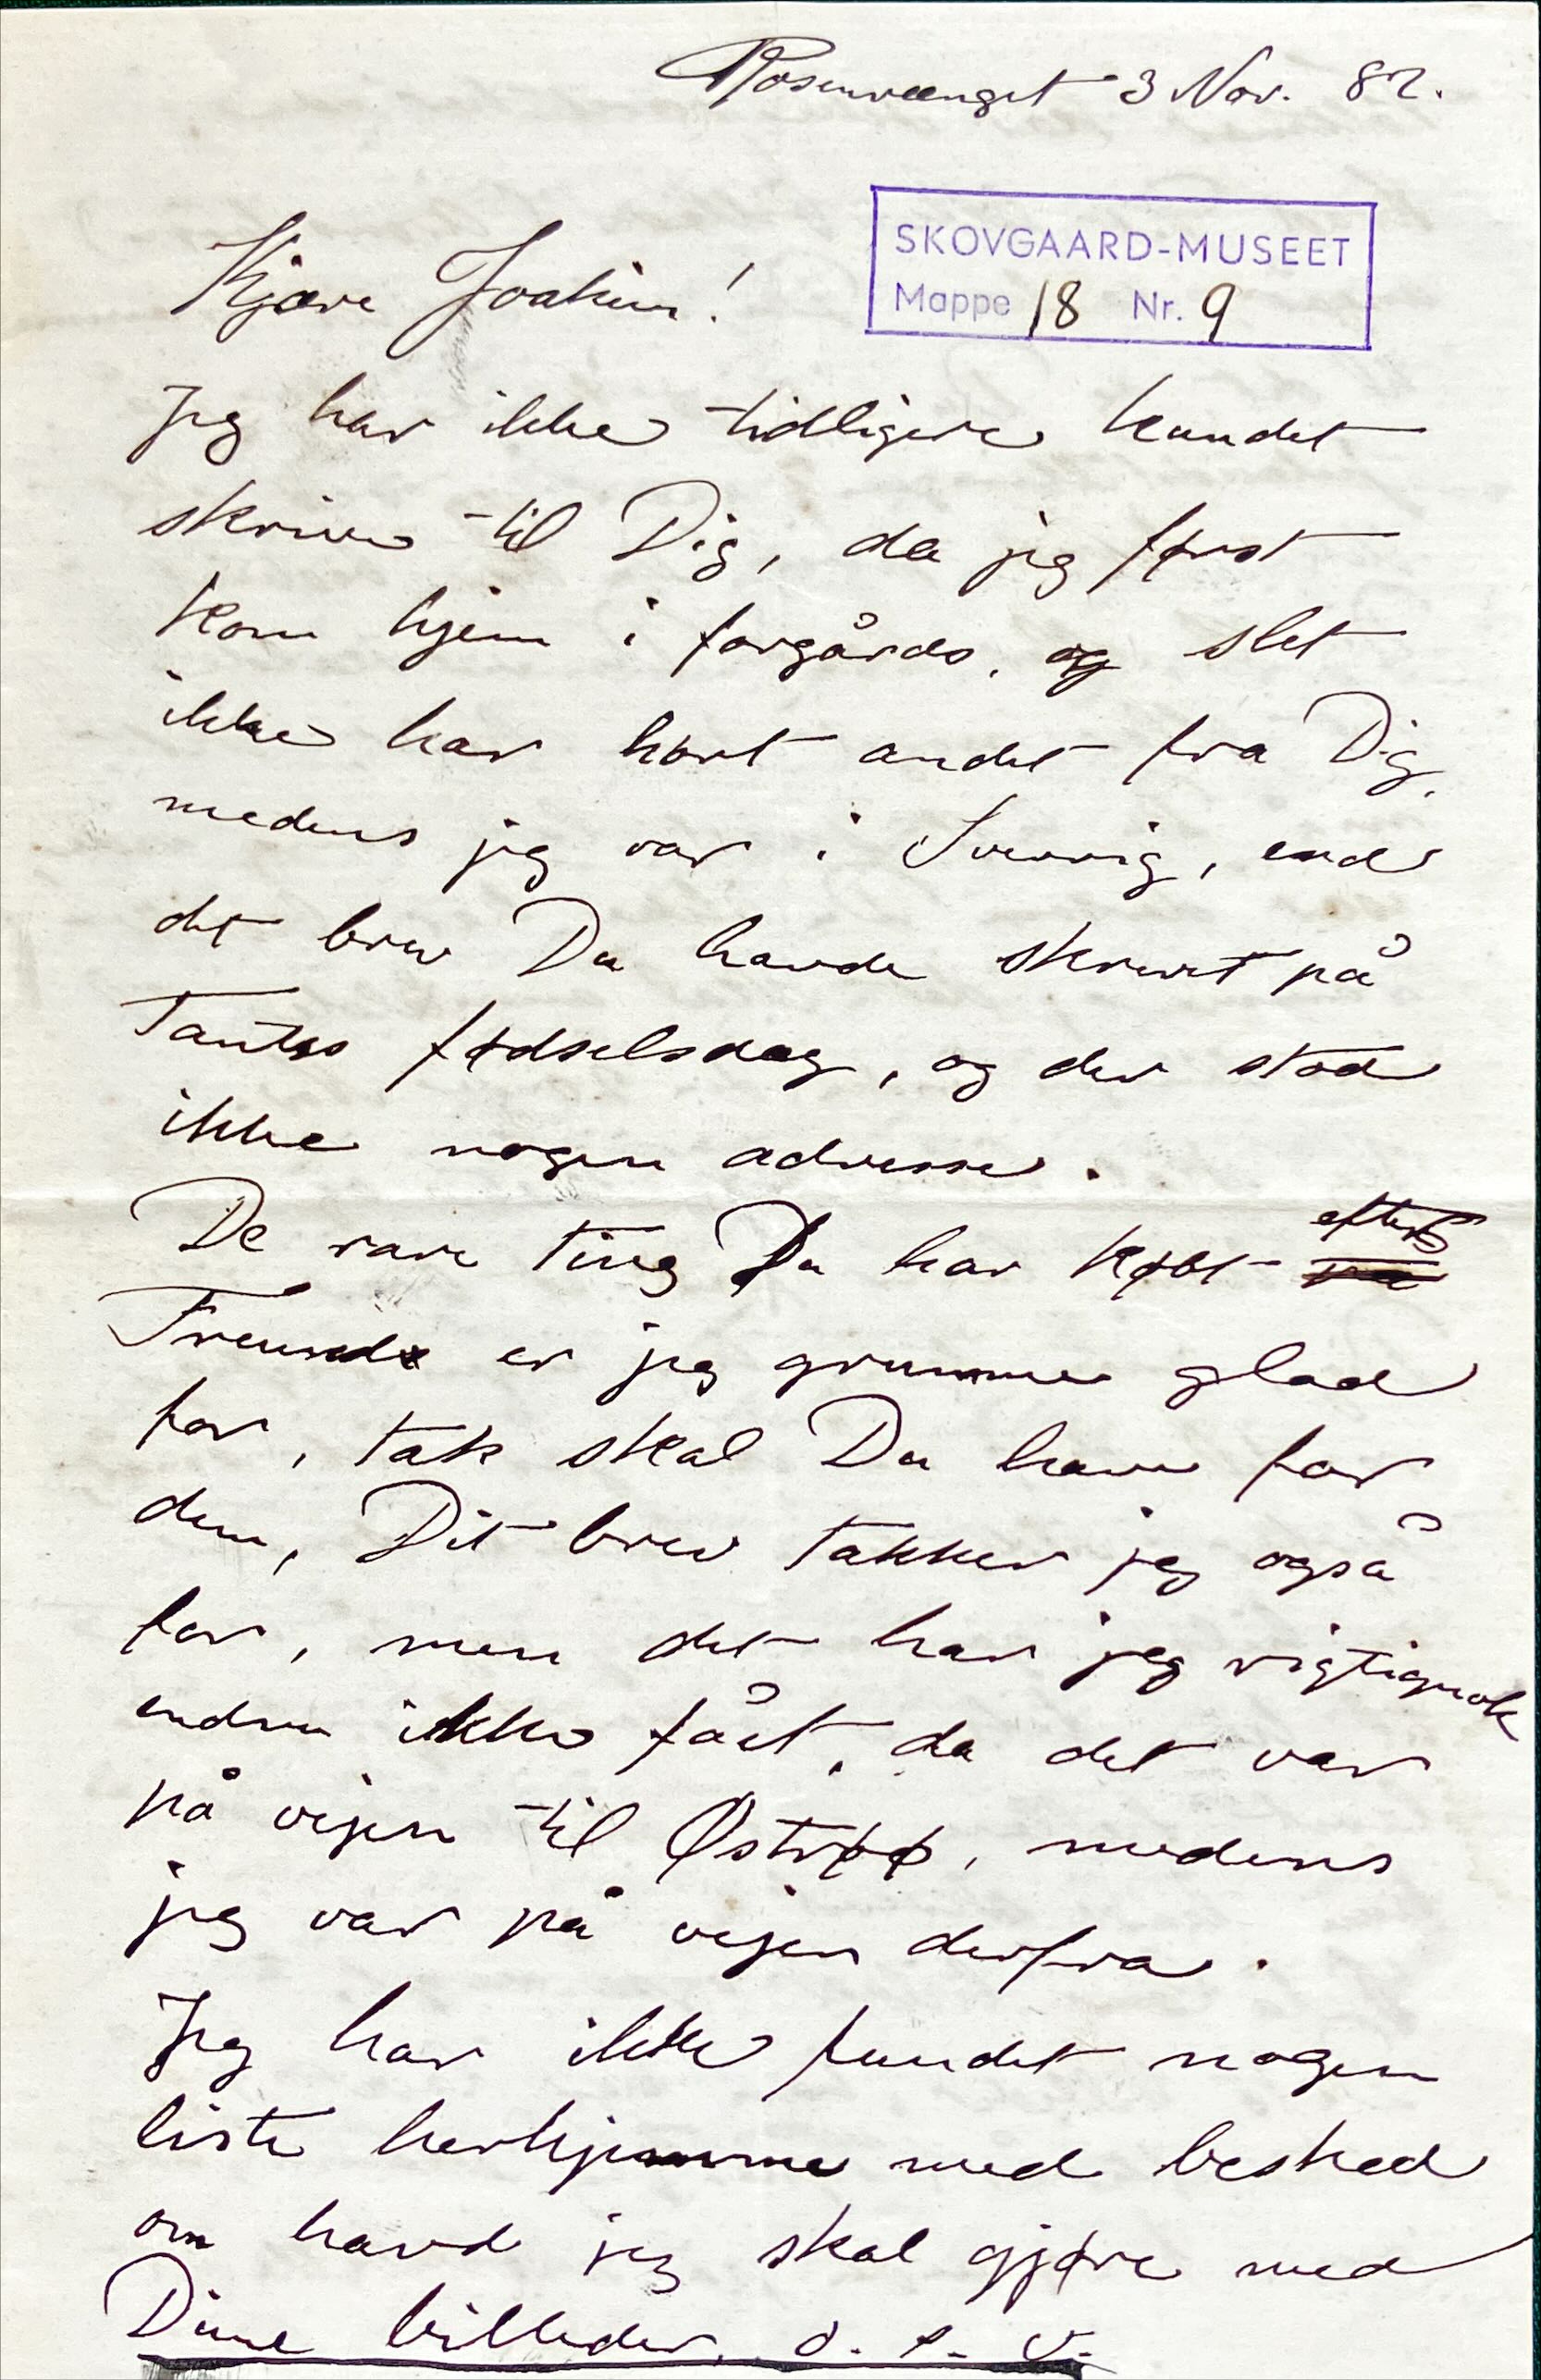 Rosenvænget 3 Nov. 82.
SKOVGAARD-MUSEET
Mappe 18 Nr. 9
Kjære Joakim!
Jeg har ikke tidligere kundet
skrive til Dig, da jeg først
kom hjem i forgårds, og slet
ikke har hørt andet fra Dig,
medens jeg var i Sverrig, end
det brev Du havde skrevet på
Tantes fødselsdag, og der stod
ikke nogen adresse.
De rare ting Du har købt efter
Freund er jeg grumme glad
for, tak skal Du have for
dem, Dit brev takker jeg også
for, men det har jeg rigtignok
endnu ikke fåët, da det var
på vejen til Østrøø, medens
jeg var på vejen derfra.
Jeg har ikke fundet nogen
liste herhjemme med besked
om havd jeg skal gjøre med
Dine billeder, o. s. v.